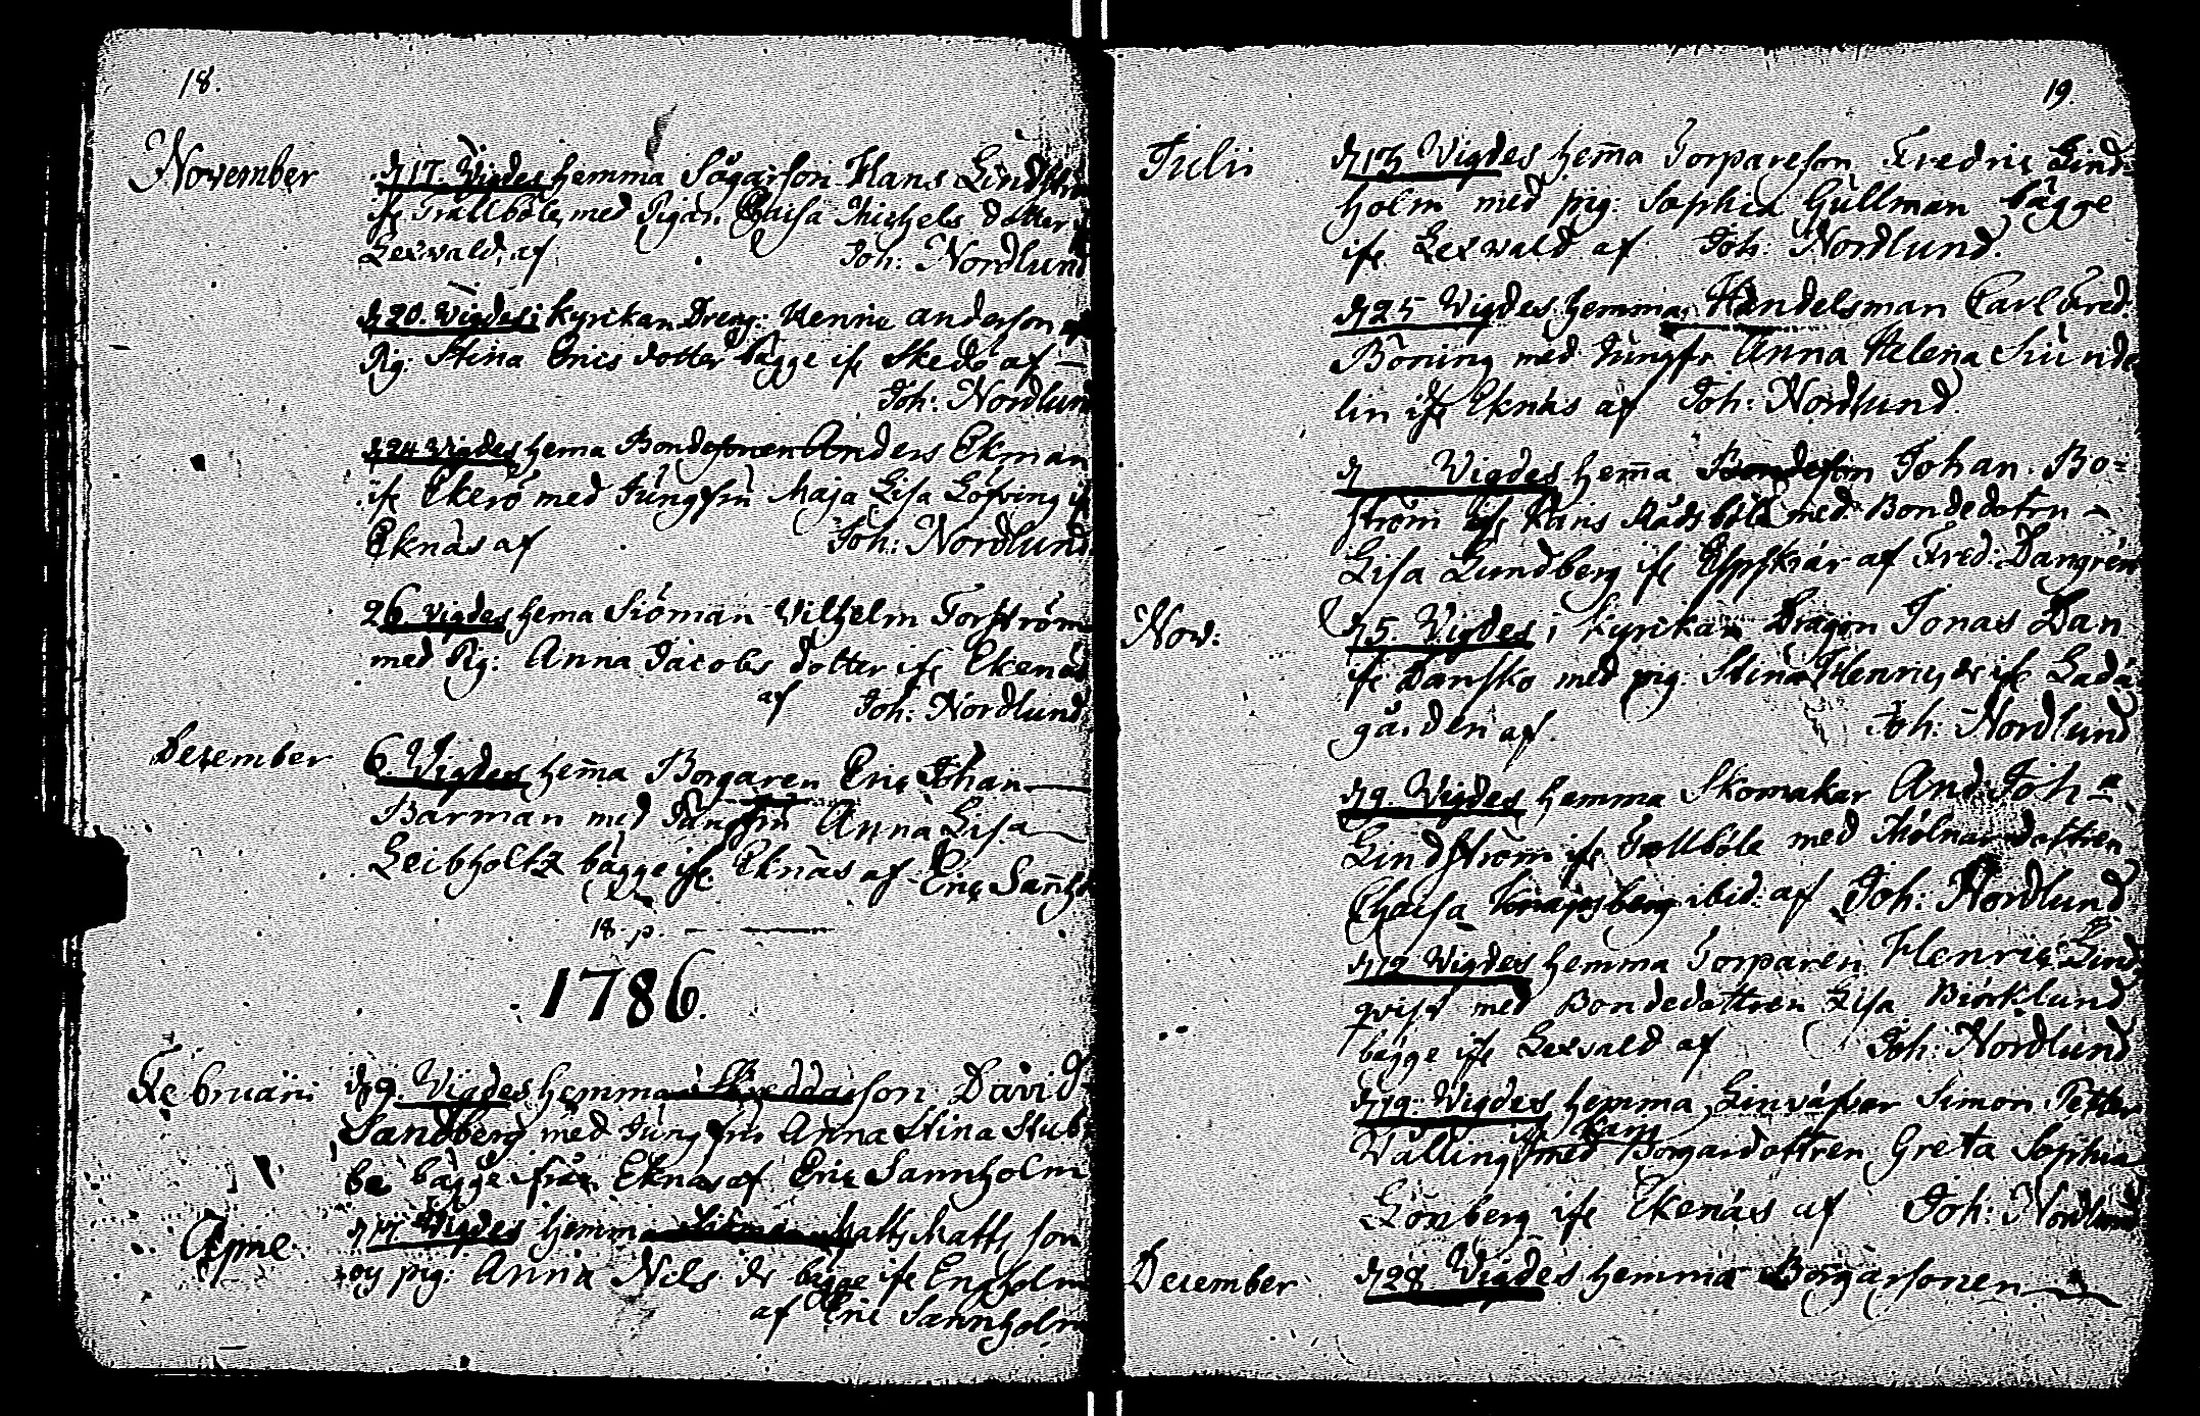 18.
November
d 17. Vigdes hemma Sågarson Hans Lindström
ifr Trällböle, med Pigan Chaisa Michels dotter
Lexvald, af Joh: Nordlund
d 20. Vigdes i Kyrkan Dreng: Henric anderson
Pig: Stina Erics dotter bägge ifr Skedö af
Joh: Nordlund
d 24 Vigdes hema Bondesonen Anders Ekman
ifr Ekerö med Jungfru Maja Lisa Löfving ifr
Eknäs af Joh: Nordlund
26. vigdes hema Siöman Vilhelm Forsström
med Pig: Anna Jacobs dotter ifr Ekenäs
af Joh: Nordlund
Dezember
6. Vigdes hem̄a Borgaren Eric Johan
Barman med Jungfru Anna Lisa
Leibholtz bägge ifr Eknäs af Eric Sanh
18. p.
1786.
Februari
d 9. Vigdes hemma son David
Sandberg med Jungfru Anna Stina Stub
be bägge från Eknäs af Eric Sannholm
Aprile
d 17. Vigdes hemma Matts Matts son
och pig: Anna Nils dr bägge ifr Engholm
af Eric Sannholm
19.
Julii
d 13 Vigdes hem̄a Torpareson Fredric Lind=
holm med pig: Sophia Gullman bägge
ifr Lexvald af Joh: Nordlund.
d 25 Vigdes hemma Handelsman Carl Fred:
Böning med Jungfr Anna Helena Siunde
lin ifr Eknäs af Joh: Nordlund.
d Vigdes hem̄a Bondeson Johan Bo=
ström ifr Råds böle med Bondedotren
Lisa Lundberg ifr Espskiär af Fred: Dangrén
Nov:
d 5. Vigdes i Kyrikan Dragon Jonas Dan
ifr Dansko med pig: Stina Henrics dr ifr Lada
gården af. Joh: Nordlund
d 9. Vigdes hemma Skomakar And: Joh:
Lindström ifr Trällböle med Mölnardottren
Chaisa ibid: af Joh: Nordlund
d 12 Vigdes hemma Torparen Henric Lind
qvist med Bondedottren Lisa Biörklund
bägge ifr Lexvald af Joh: Nordlund
d 19. Vigdes hemma Linväfver Simon Petter
Valling med Borgardottren Greta Sophia
Lönberg ifr Ekenäs af Joh: Nordlund
December
d 28 Vigdes hemma Borgarsonen